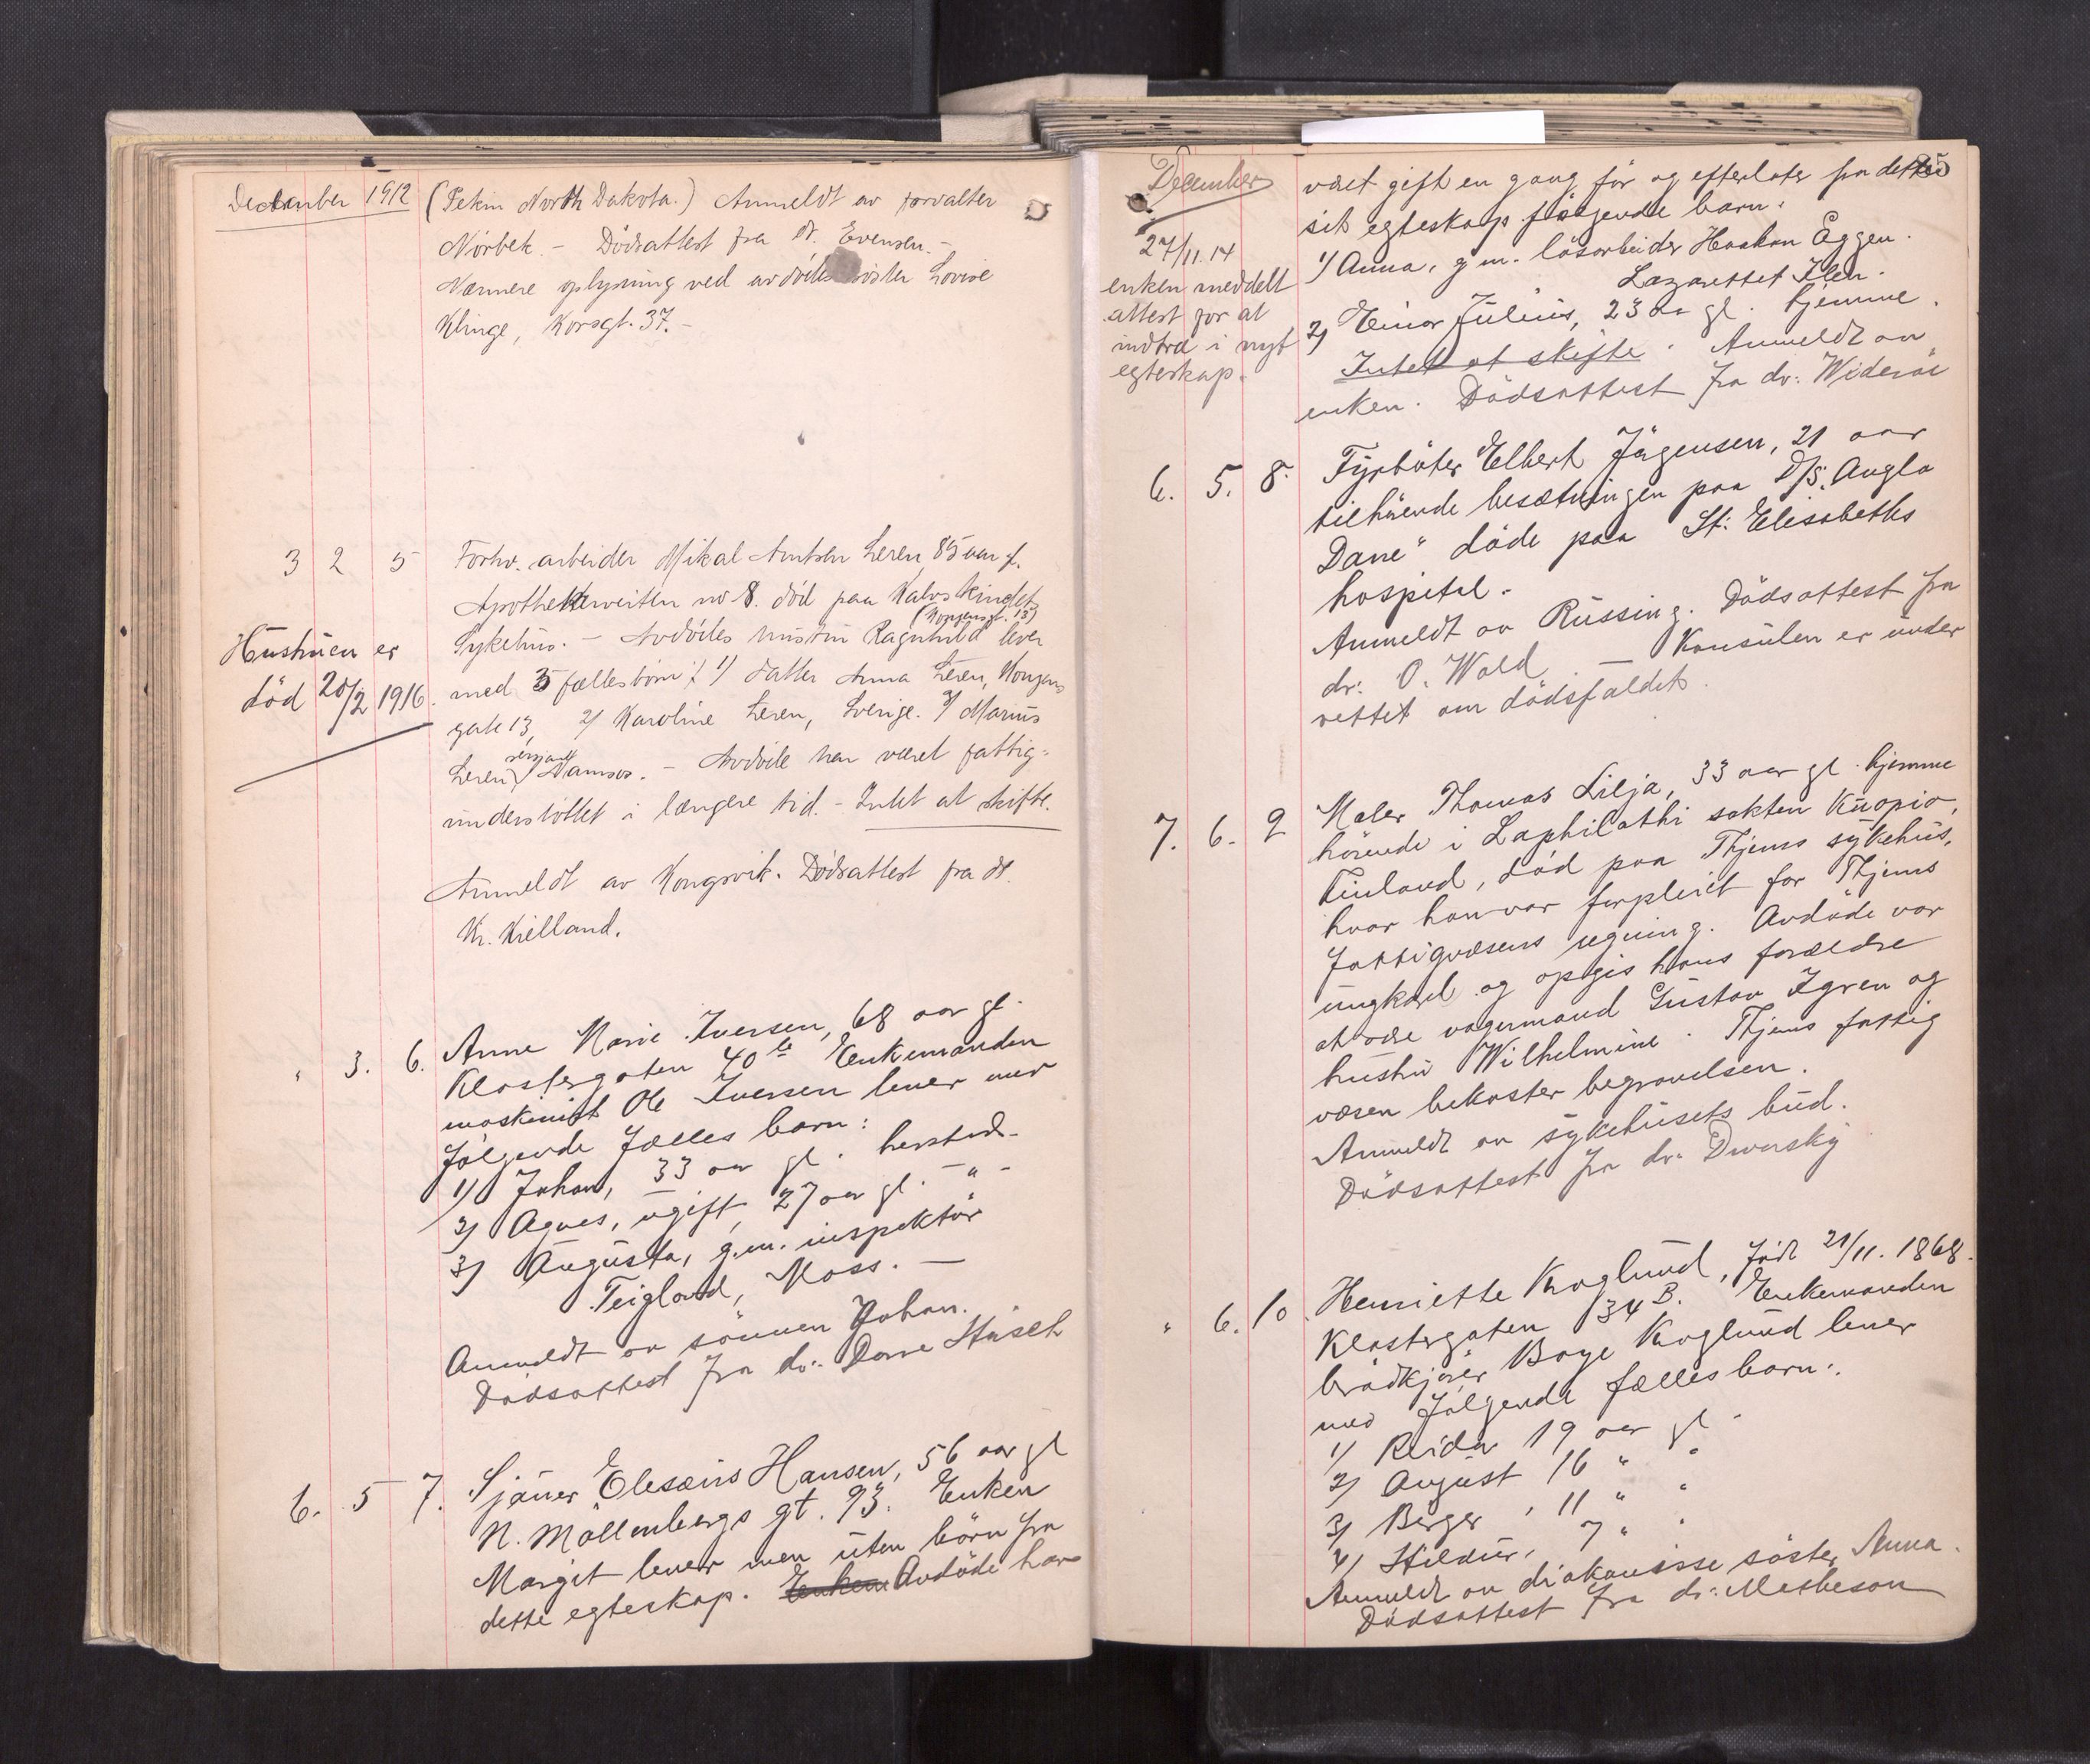 December 1912
(Pekin North Dakota.) Anmeldt av forvalter
Nörbek. - Dödsattest fra dr. Evensen. -
Nærmere oplysning ved avdödes söster Lovise
Klinge, Korsgt. 37. -
3 2 5 Forhv. arbeider Mikal Arntsen Leren 85 aar gl.
Apothekerveiten no 8. död paa Kalvskindet
(Kongensgt. 13)
Sykehus. - Avdödes hustru Ragnhild lever
Hustruen er
död 20/2 1916.
med 3 fællesbörn: 1) datter Anna Leren, Kongens
gate 13, 2/ Karoline Leren, Sverige. 3/ Marius
Leren, sersjant Namsos. - Avdöde har været fattig-
understöttet i længere tid. - Intet at skifte.
Anmeldt av Kongsvik. Dödsattest fra dr.
Kr. Kielland.
" 3. 6. Anne Marie Iversen, 68 aar gl.
Klostergaten 40 Enkemanden
maskinist Ole Iversen lever med
følgende fælles barn:
1) Johan, 33 aar gl. hersteds.
2) Agnes, ugift, 27 aar gl. - " -
3) Augusta, g.m. inspektör
Teigland, Moss. -
Anmeldt av sönnen Johan.
Dödsattest fra dr: Dorre Husch
6. 5 7. Sjöuer Elesæus Hansen, 56 aar gl
N. Möllenbergs gt. 93. Enken
Margit lever men uten börn fra
dette egteskap. Enken Avdöde har
December
85
været gift en gang før og efterlater fra dette
sit egteskap følgende barn:
27/11.14
enken meddelt
attest for at
indtræ i nyt
egteskap.
1) Anna, g.m. lösarbeider Haakon Eggen.
Lazarettet Ilen.
2) Einar Julius, 23 aar gl. hjemme.
Intet at skifte. Anmeldt av
enken. Dödsattest fra dr: Wideröe
6. 5. 8. Fyrböter Elbert Jörgensen, 21 aar
tilhörende besætningen paa D/S. "Anglo
Dane" döde paa St: Elisabeths
hospital.
Anmeldt av Rüssing. Dödsattest fra
dr: O. Wold - Konsulen er under
rettet om dödsfaldet.
7. 6. 9 Maler Thomas Lilja, 33 aar gl. hjemme
hörende i Laphilathi sokten Kuopio,
Finland, död paa Thjems sykehus,
hvor han var forpleiet for Thjems
fattigvæsens regning. Avdöde var
ungkarl og opgis hans forældre
at være vognmand Gustav Zgren og
hustru Wilhelmine. Thjems fattig
væsen bekoster begravelsen.
Anmeldt av sykehusets bud.
Dödsattest fra dr: Dworsky
" 6. 10. Henriette Kroglund, född 21/11. 1868.
Klostergaten 34 B. Enkemanden
brödkjörer Boye Kroglund lever
med følgende fælles barn:
1) Reidar 19 aar gl.
2) August 16 " "
3) Birger, 11 " "
4) Hildur, 7 " "
Anmeldt av diakonisse söster Anna.
Dödsattest fra dr: Matheson